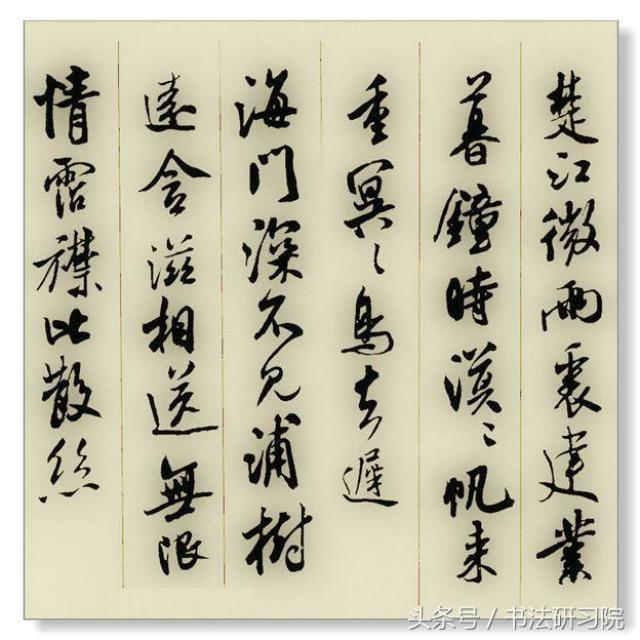 楚江微雨裏建業
暮鐘時漠〻帆来
重冥〻鳥去遲
海門深不見浦樹
遠含滋相送無限
情霑襟比散絲
头条号 / 书法研习院